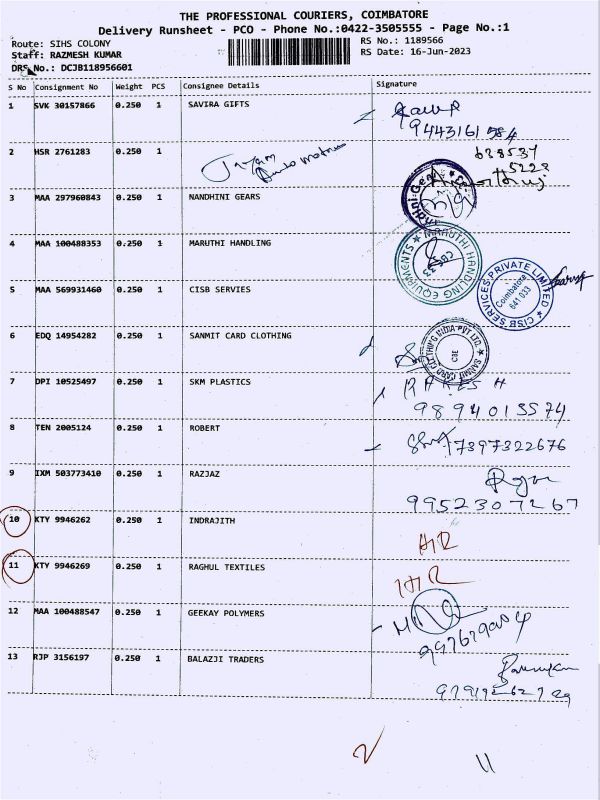 THE PROFESSIONAL COURIERS, COIMBATORE
Delivery Runsheet - PCO - Phone No.:0422-3505555 - Page No.:1
Route: SIHS COLONY RS No.: 1189566
Staff: RAZMESH KUMAR RS Date: 16-Jun-2023
DRS No.: DCJB118956601
S No Consignment No Weight PCS Consignee Details Signature
1 SVK 30157866 0.250 1 SAVIRA GIFTS
9443161584
2 HSR 2761283 0.250 1
638537
5223
3 MAA 297960843 0.250 1 NANDHINI GEARS
4 MAA 100488353 0.250 1 MARUTHI HANDLING
MARUTHI HANDLING EQUIPMENTS
CBE-33
5 MAA 569931460 0.250 1 CISB SERVIES
CISB SERVICES PRIVATE LIMITED
Coimbatore
641 033
6 EDQ 14954282 0.250 1 SANMIT CARD CLOTHING
SANMIT CARD CLOTHING INDIA PVT LTD.
CBE
7 DPI 10525497 0.250 1 SKM PLASTICS
RAKESH
9894013574
8 TEN 2005124 0.250 1 ROBERT
7397322676
9 IXM 503773410 0.250 1 RAZJAZ
9952307267
10 KTY 9946262 0.250 1 INDRAJITH
11 KTY 9946269 0.250 1 RAGHUL TEXTILES
12 MAA 100488547 0.250 1 GEEKAY POLYMERS
13 RJP 3156197 0.250 1 BALAZJI TRADERS
2 11